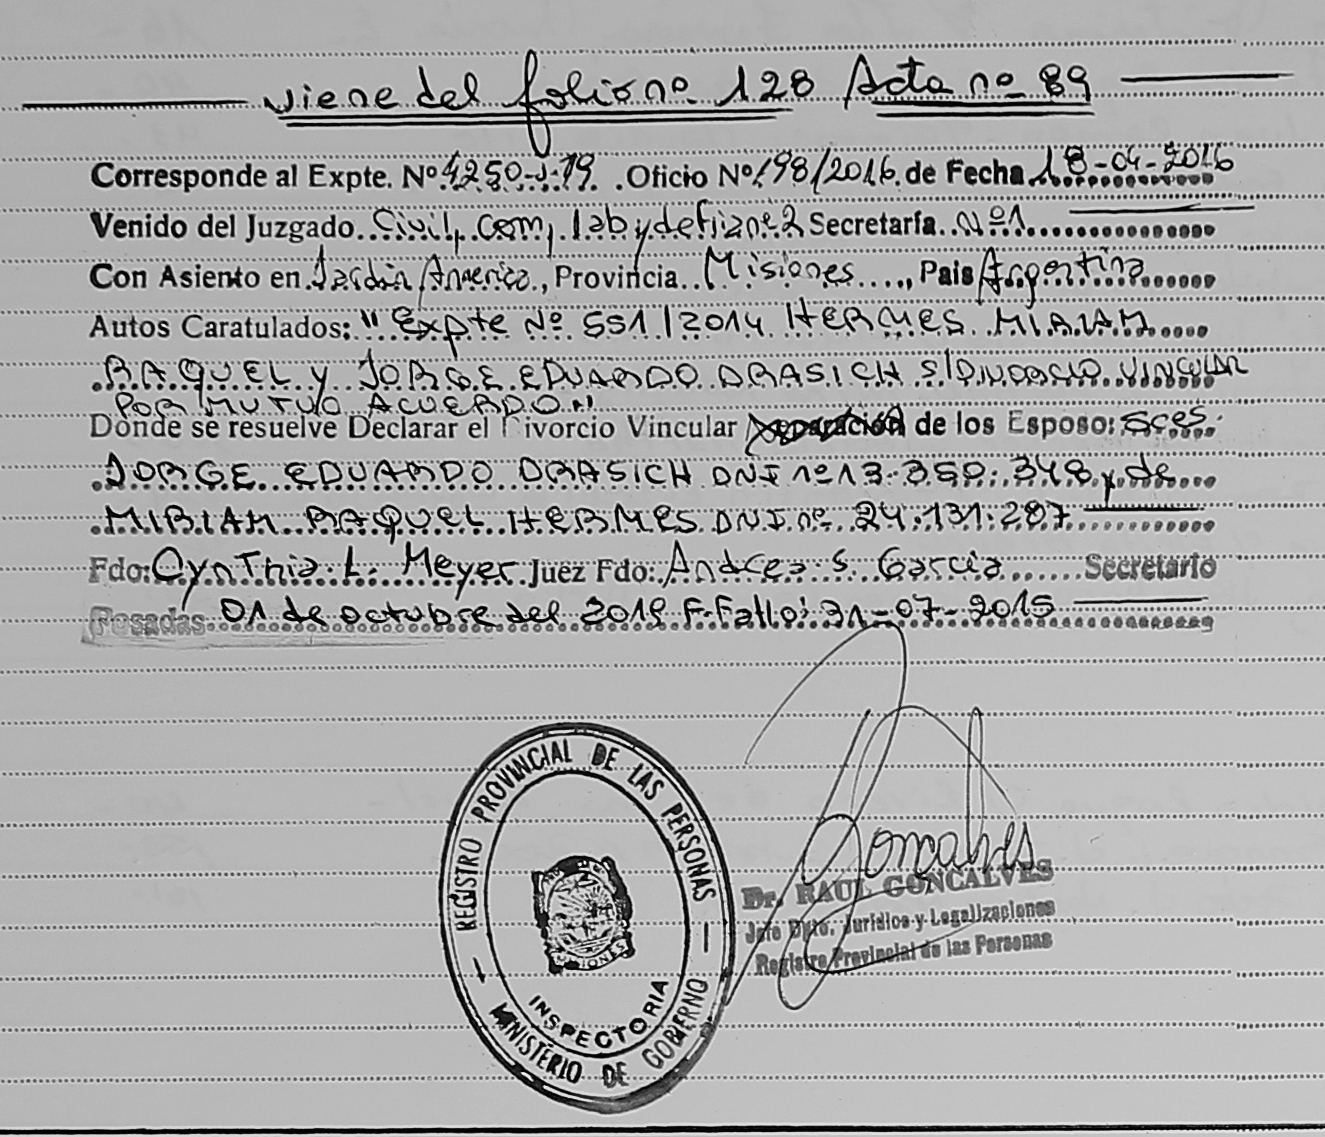 viene del folio nº 128 Acta nº 89
Corresponde al Expte. Nº 4250-J-19. Oficio Nº 198/2016. de Fecha 18-04-2016
Venido del Juzgado Civil, com, lab y de flia nº 2 Secretaría Nº 1
Con Asiento en Jardín America, Provincia Misiones, Pais Argentina
Autos Caratulados: "Expte Nº 551/2014 HERMES MIRIAM
RAQUEL y JORGE EDUARDO DRASICH S/DIVORCIO VINCULAR
POR MUTUO ACUERDO"
Donde se resuelve Declarar el Divorcio Vincular Separación de los Esposo: Sres.
JORGE EDUARDO DRASICH DNI nº 13.350.348 y de
MIRIAM RAQUEL HERMES DNI nº 24.131.287
Fdo: Cynthia L. Meyer Juez Fdo: Andrea S. García Secretario
Posadas 01 de octubre del 2019 F. Fallo: 31-07-2015
REGISTRO PROVINCIAL DE LAS PERSONAS
MISIONES
INSPECTORIA
MINISTERIO DE GOBIERNO
Goncalves
Dr. RAUL GONCALVES
Jefe Dpto. Jurídico y Legalizaciones
Registro Provincial de las Personas